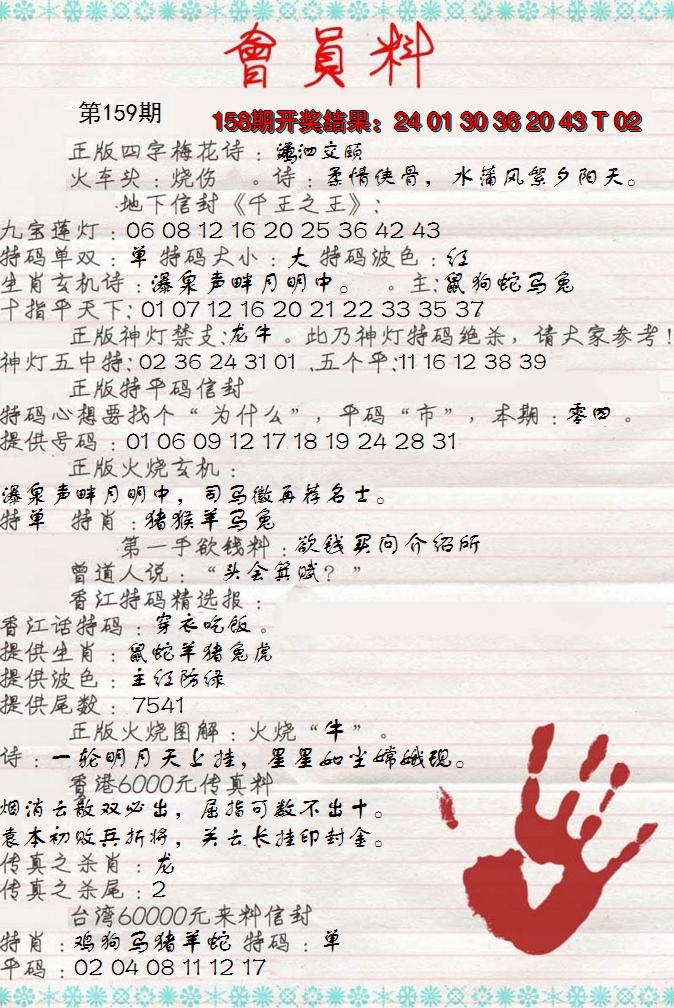 會員料
第159期
158期开奖结果：24 01 30 36 20 43 T 02
正版四字梅花诗：涕泗交颐
火车头：烧伤 。诗：柔情侠骨，水蒲风絮夕阳天。
地下信封《千王之王》：
九宝莲灯：06 08 12 16 20 25 36 42 43
特码单双：单 特码大小：大 特码波色：红
生肖玄机诗：瀑泉声畔月明中。 。主：鼠狗蛇马兔
十指平天下：01 07 12 16 20 21 22 33 35 37
正版神灯禁支：龙牛。此乃神灯特码绝杀，请大家参考！
神灯五中特：02 36 24 31 01 .五个平：11 16 12 38 39
正版特平码信封
特码心想要找个“为什么”，平码“市”，本期：零四。
提供号码：01 06 09 12 17 18 19 24 28 31
正版火烧玄机：
瀑泉声畔月明中，司马徽再荐名士。
特单 特肖：猪猴羊马兔
第一手欲钱料：欲钱买问介绍所
曾道人说：“头会箕赋？”
香江特码精选报：
香江话特码：穿衣吃饭。
提供生肖：鼠蛇羊猪兔虎
提供波色：主红防绿
提供尾数：7541
正版火烧图解：火烧“牛”。
诗：一轮明月天上挂，星星如尘嫦娥现。
香港6000元传真料
烟消云散双必出，屈指可数不出十。
袁本初败兵折将，关云长挂印封金。
传真之杀肖：龙
传真之杀尾：2
台湾60000元来料信封
特肖：鸡狗马猪羊蛇 特码：单
平码：02 04 08 11 12 17